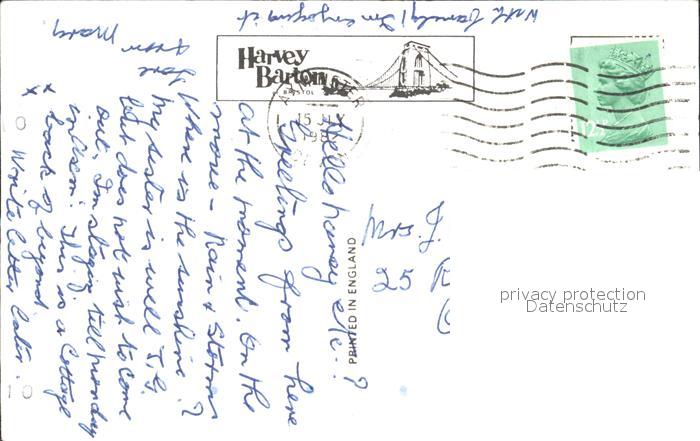 Harvey
Barton
BRISTOL
15 JLY
12½P
Hello Nancy etc -?
Greetings from here
at the moment. On the
move - Rain & Storms
Where is the sunshine?
My sister is well T.G.
but does not wish to come
out. I'm staying till Monday
This is a Cottage
back of beyond
Write letter later.
x x
With family! I'm enjoying it
love
from Mary
Mrs J.
25
PRINTED IN ENGLAND
privacy protection
Datenschutz